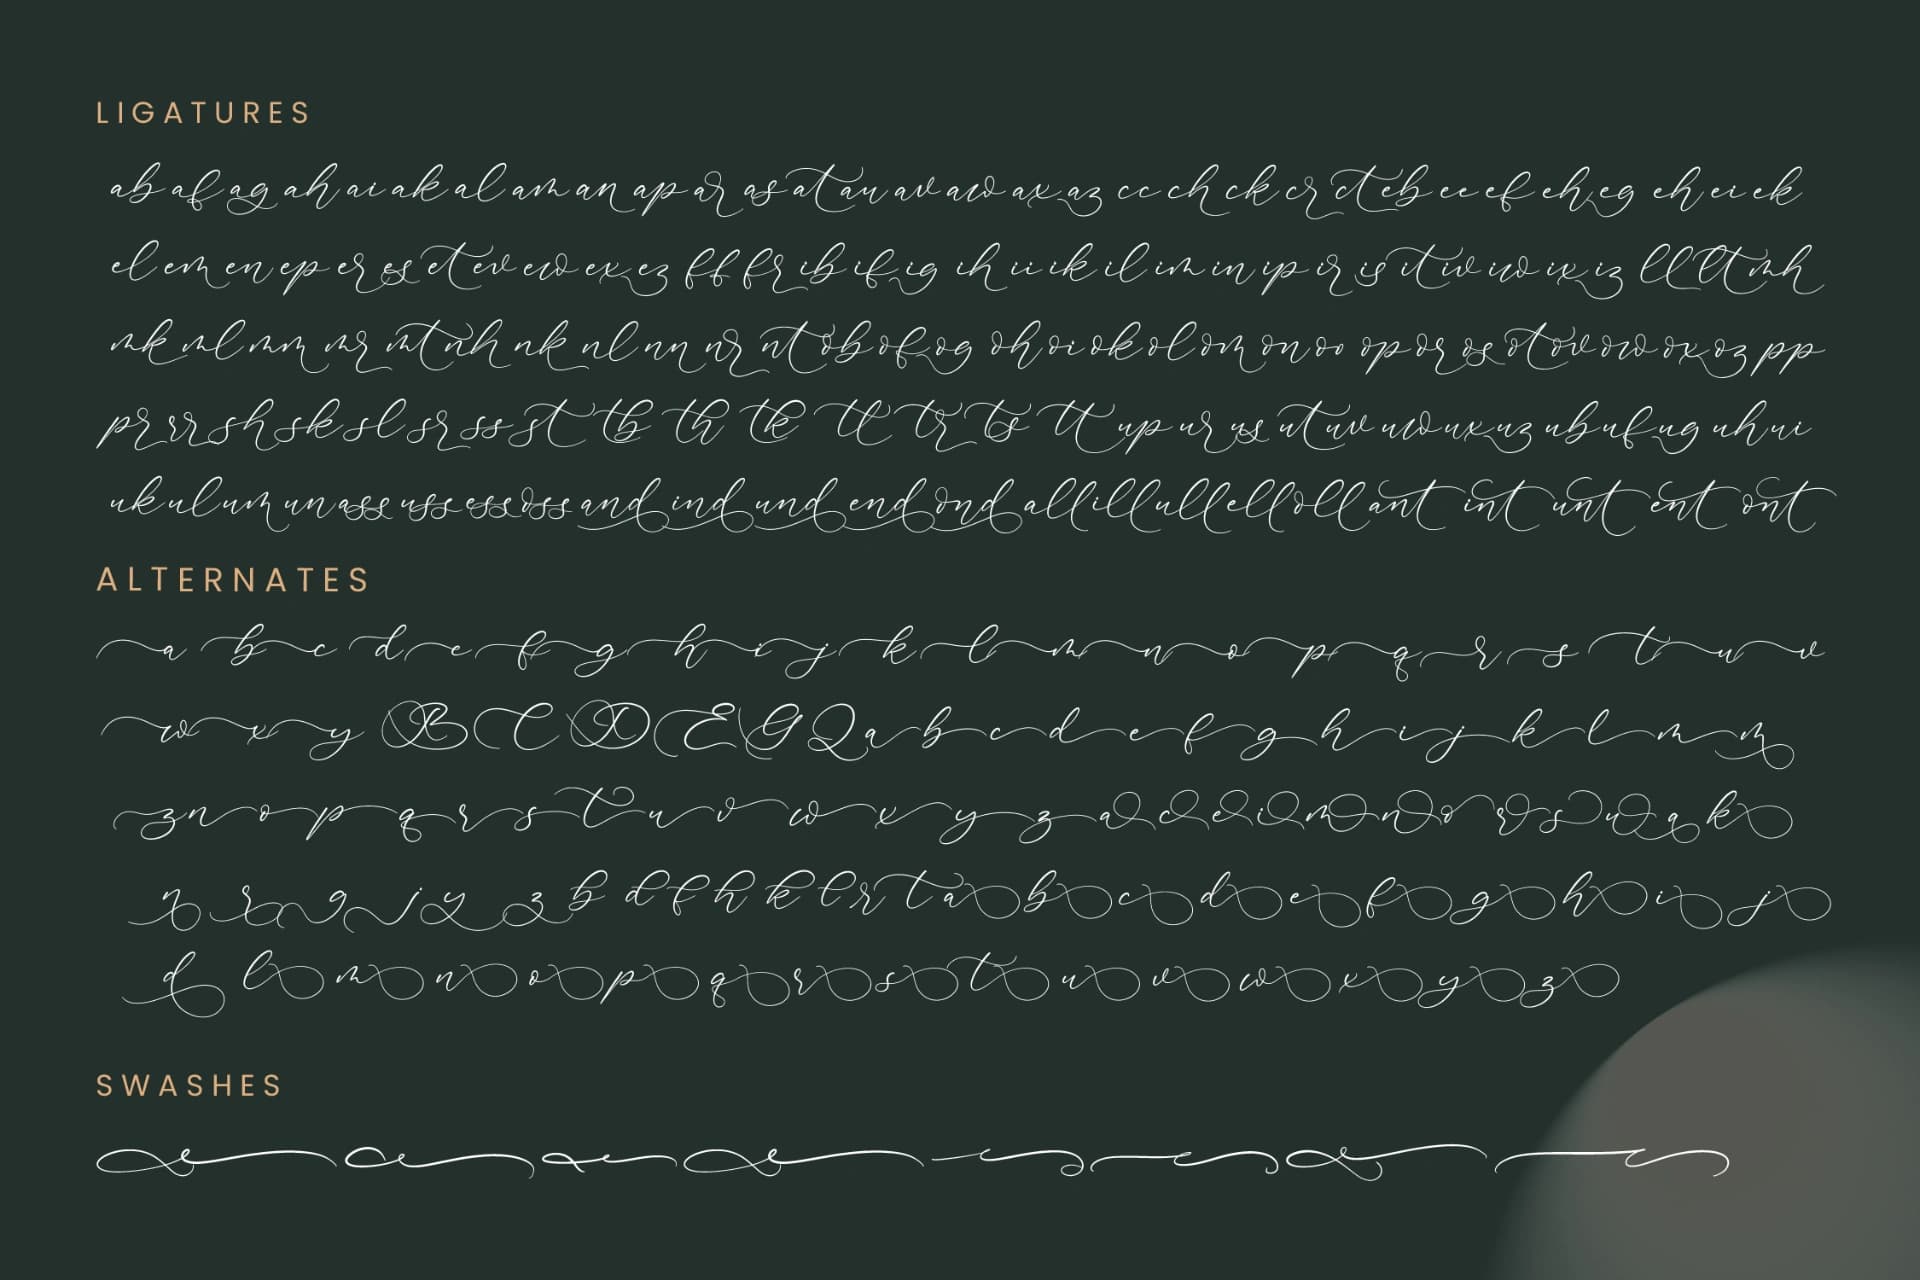 LIGATURES
ab af ag ah ai ak al am an ap ar as at au av aw ax az cc ch ck cr ct eb ee ef eh eg eh ei ek
el em en ep er es et ev ew ex ez ff fr ib if ig ih ii ik il im in ip ir is it iv iw ix iz ll lt mh
mk ml mm mr mt nh nk nl nn nr nt ob of og oh oi ok ol om on oo op or os ot ov ow ox oz pp
pr rr sh sk sl sr ss st tb th tk tl tr ts tt up ur us ut uv uw ux uz ub uf ug uh ui
uk ul um un ass uss ess oss and ind und end ond all ill ull ell oll ant int unt ent ont
ALTERNATES
a b c d e f g h i j k l m n o p q r s t u v
w x y B C D E G Q a b c d e f g h i j k l m m
z n o p q r s t u v w x y z a c e i m n o r s u a k
n r g j y z b d f h k l r t a b c d e f g h i j
d l m n o p q r s t u v w x y z
SWASHES